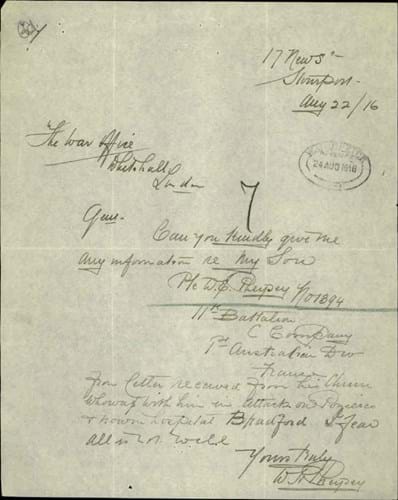 17 New St
Stourport
Aug 22/16
WAR OFFICE
24 AUG 1916
The War Office
Whitehall
London
7
Gen.
Can you kindly give me
any information re My Son
Pte W.E. No 1394
11th Battalion
C Company
1st Australian Div
France
From letter received from his Chum
who was with him in attack on Pozieres
& now in hospital Bradford I fear
all is not well
Yours truly